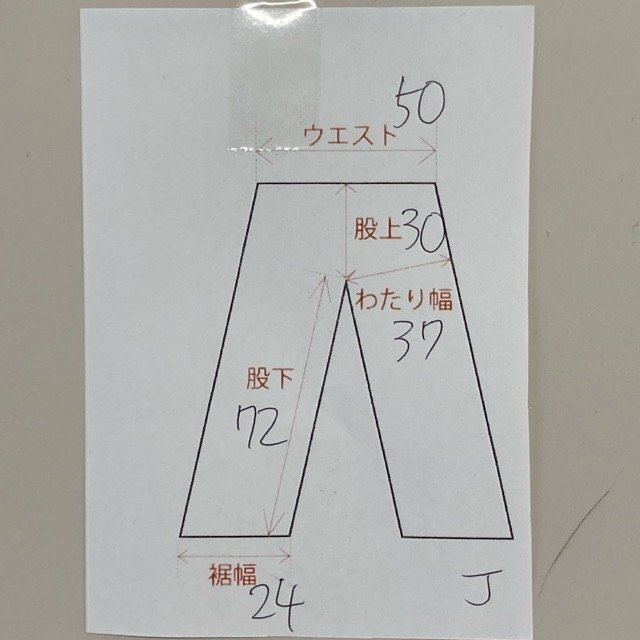 50
ウエスト
股上30
わたり幅
37
股下
72
裾幅
24
J